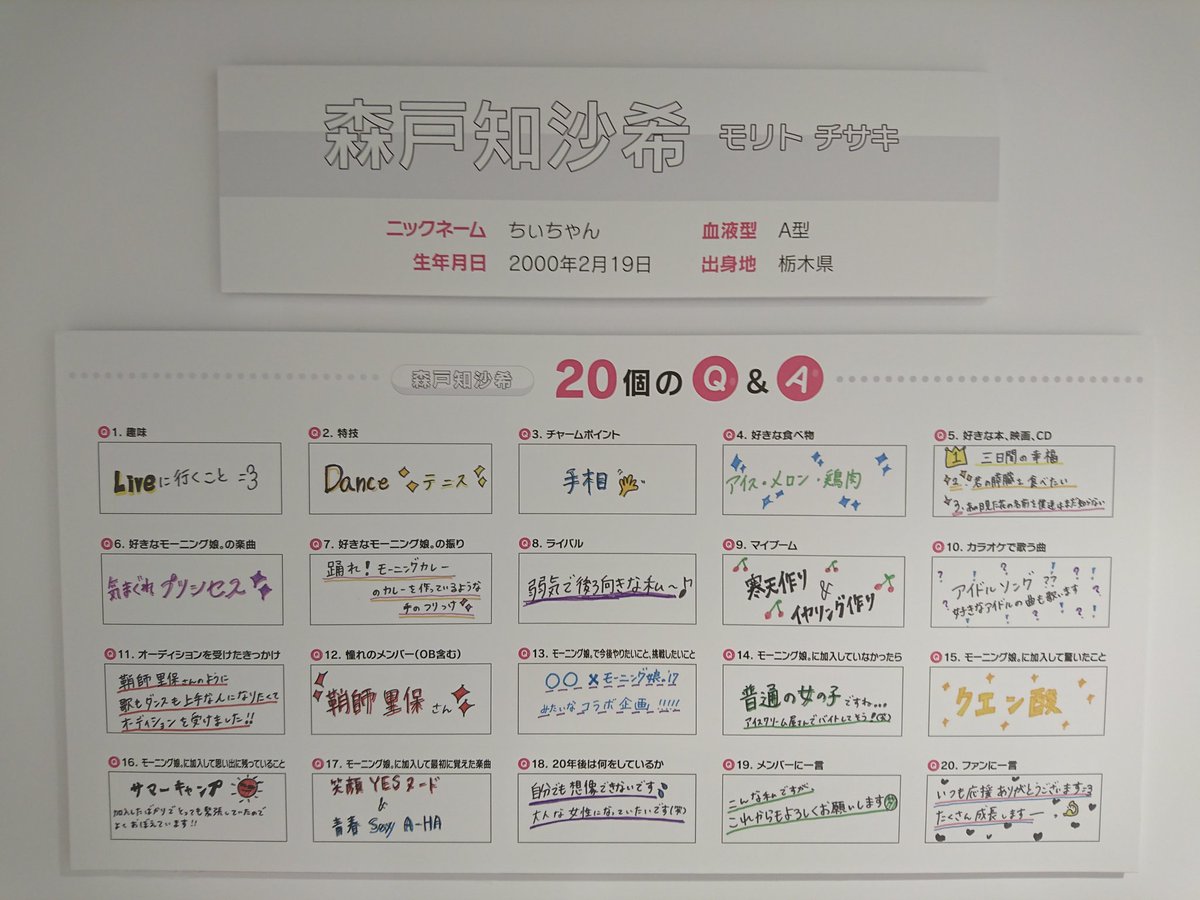 森戸知沙希 モリト チサキ
ニックネーム ちぃちゃん 血液型 A型
生年月日 2000年2月19日 出身地 栃木県
森戸知沙希 20個の Q & A
Q1. 趣味
Liveに行くこと =3
Q2. 特技
Dance テニス
Q3. チャームポイント
手相
Q4. 好きな食べ物
アイス・メロン・鶏肉
Q5. 好きな本、映画、CD
1 三日間の幸福
2. 君の膵臓を食べたい
3. あの日見た花の名前を僕達はまだ知らない
Q6. 好きなモーニング娘。の楽曲
気まぐれプリンセス
Q7. 好きなモーニング娘。の振り
踊れ!モーニングカレー
のカレーを作っているような
手のフリつけ
Q8. ライバル
弱気で後ろ向きな私〜♪
Q9. マイブーム
寒天作り
&
イヤリング作り
Q10. カラオケで歌う曲
アイドルソング??
好きなアイドルの曲も歌います
Q11. オーディションを受けたきっかけ
鞘師里保さんのように
歌もダンスも上手な人になりたくて
オーディションを受けました!!
Q12. 憧れのメンバー(OB含む)
鞘師里保さん
Q13. モーニング娘。で今後やりたいこと、挑戦したいこと
○○×モーニング娘。'17
みたいなコラボ企画!!!!!
Q14. モーニング娘。に加入していなかったら
普通の女の子ですね...
アイスクリーム屋さんでバイトしてそう!(笑)
Q15. モーニング娘。に加入して驚いたこと
クエン酸
Q16. モーニング娘。に加入して思い出に残っていること
サマーキャンプ
加入したばかりでとっても緊張していたので
よくおぼえています!!
Q17. モーニング娘。に加入して最初に覚えた楽曲
笑顔YESヌード
&
青春 Sexy A-HA
Q18. 20年後は何をしているか
自分でも想像できないです
大人な女性になっていたいです(笑)
Q19. メンバーに一言
こんな私ですが、
これからもよろしくお願いします
Q20. ファンに一言
いつも応援ありがとうございます=3
たくさん成長しますー